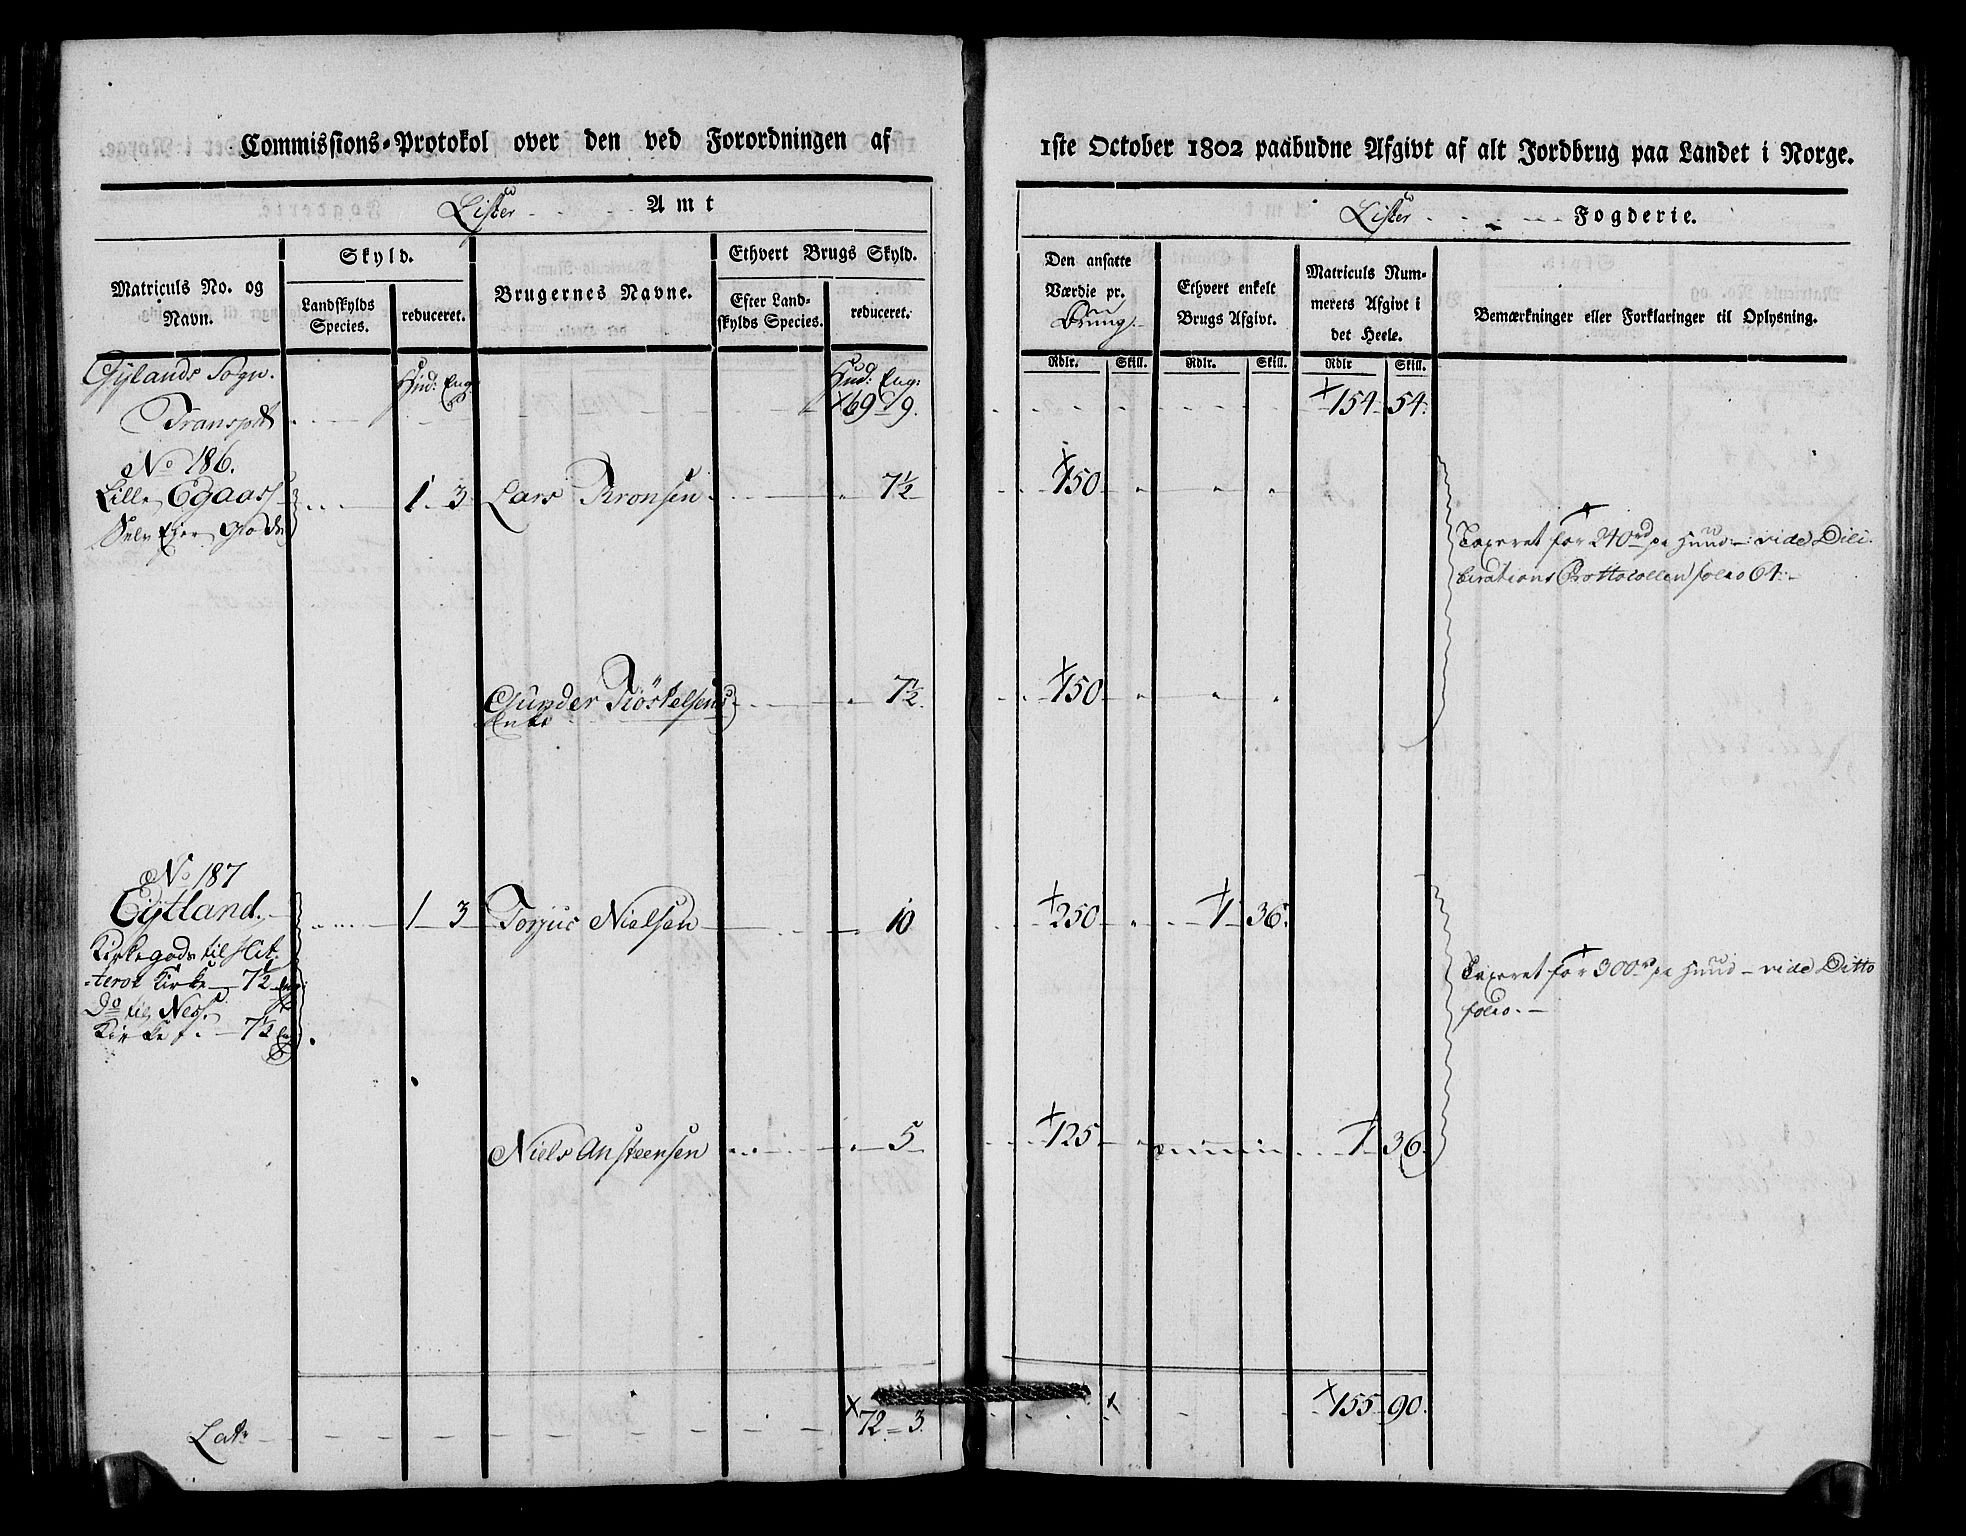 Commissions-Protokol over den ved Forordningen af
1ste October 1802 paabudne Afgivt af alt Jordbrug paa Landet i Norge.
Lister Amt
Lister Fogderie.
Matriculs No. og Navn.
Skyld.
Landskylds Species.
reduceret.
Brugernes Navne.
Ethvert Brugs Skyld.
Efter Landskylds Species.
reduceret.
Den ansatte Værdie pr. Bruug.
Ethvert enkelt Brugs Afgivt.
Matriculs Nummerets Afgivt i det Heele.
Bemærkninger eller Forklaringer til Oplysning.
Rdlr. Skill. Rdlr. Skill. Rdlr Skill.
Gylands Sogn. Hud: Eng: Hud: Eng:
Transpt 69 9. 154 54.
No 186.
Lille Egaas 1 3 Lars Tronsen 7½ 150
Selv Ejer Gods
Taxeret for 240 rd pr Huud – vide Deli-
berations Prottocollen folio 64. –
Gunder Tiöstelsens 7½ 150
Enke
No 187
Eytland. 1 3 Torjus Nielsen 10 250 1 36
Kirkegods til Hit-
teröe Kirke 7½ Eng
Do til Nes
Kirke 7½ Eng
Taxeret for 300 rd pr Huud – vide Ditto
folio. –
Niels Ansteensen 5 125 1 36
Lat. 72 3. 155 90.